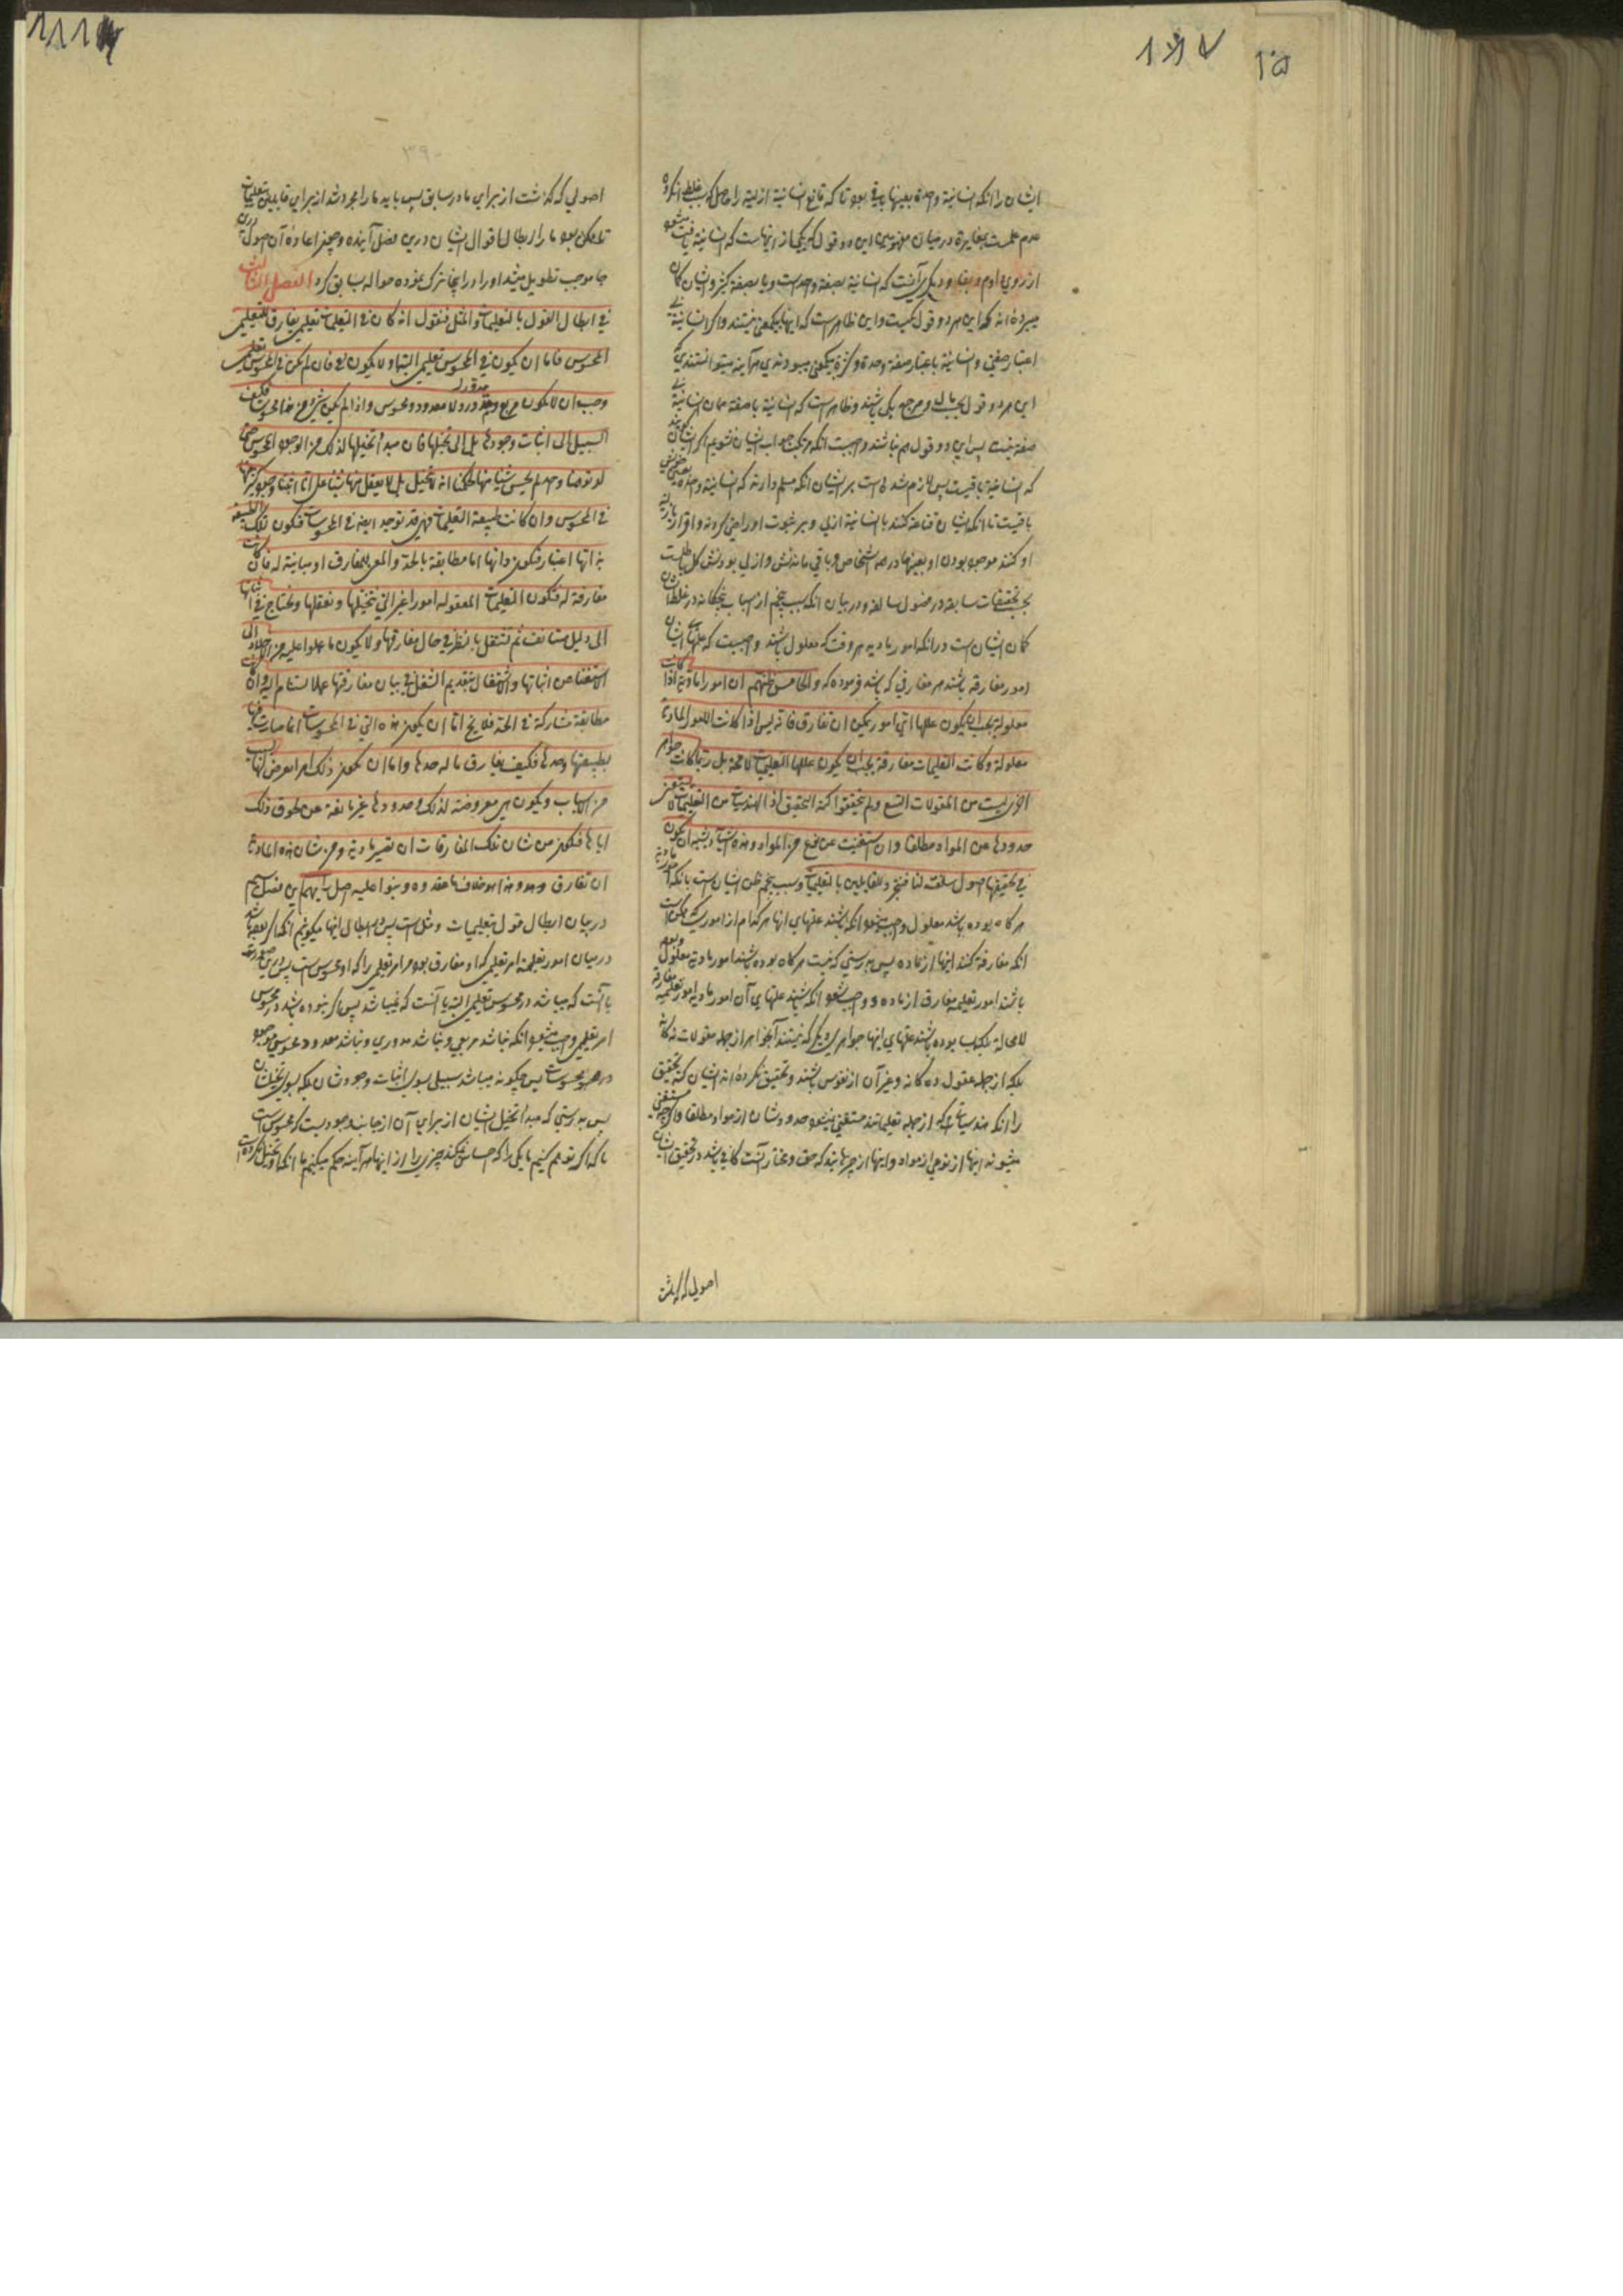 ایشان را انکه انسانیة واحدة بعینها باقی بود تا که قانع انسانیة ازلیة را حاصل کرد بسبب غلط انکه
عدم علمست بمغایرة در میان مفهومین این دو قول که یکی از اینهاست که انسانیة باقیست
از روی دوام و بقا و دیگری آنست که انسانیة بصفة واحد است و یا بصفة کثیر و ایشان گمان
میبرده اند که این هر دو قول یکیست و این ظاهر است که اینها بیک معنی نیستند و اگر انسانیة
این هر دو قول و مرجع یکی باشند و ظاهر است که انسانیة با صفة همان انسانیة
صفة نیست پس این دو قول هم نباشند
که انسانیة باقیست پس لازم شده است بر ایشان انکه مسلم دارند که انسانیة واحدة
باقیست تا انکه ایشان قناعة کنند بانسانیة ازلی
او کنند موجود بودن او بعینها در همه اشخاص و باقی ماندنش و ازلی بودنش
بحسب تحقیقات سابقه در فصول سالفه و در بیان انکه سبب پنجم از اسباب پنجگانه در غلط
گمان ایشان است در انکه امور مادیه هر وقت که معلول باشند واجبست که علتهای ایشان
امور مفارقه باشند هر مفارقی که باشد فرموده که والخامس ظنهم ان امورا مادیة اذا کانت
معلولة یجب ان یکون عللها ای امور یمکن ان تفارق فانه لیس اذا کانت الامور المادیة
معلولة و کانت التعلیمات مفارقة یجب ان یکون عللها التعلیمات لا محة بل ربما کانت جواهر
اخری لیست من المقولات التسع ولم یتحققوا کنه التحقیق ان الهندسیات من التعلیمات لا تستغنی
حدودها عن المواد مطلقا وان استغنیت عن نوع من المواد وهذه اشیاء یشبه ان یکون
فی تحقیقها اصول سلفت لنا فنتجرد للقایلین بالتعلیمات و سبب پنجم ظن ایشان است بانکه امور مادیه
هر گاه بوده باشد معلول واجب میشود انکه باشند علتهای انها هر کدام از اموری که ممکن است
انکه مفارقة کنند اینها از ماده پس بدرستی که نیست هر گاه بوده باشند امور مادیة معلول و بوده
باشند امور تعلیمیه مفارق از ماده و واجب شود انکه باشند علتهای آن امور مادیه امور تعلیمیه مفارقه
لا محالة بلکه بسا بوده باشند علتهای اینها جواهر دیگر که نیستند آنجواهر از جمله مقولات نه گانه
بلکه از جمله عقول ده گانه و غیر آن از نفوس باشند و تحقیق نکرده اند ایشان کنه تحقیق
را انکه هندسیات که از جمله تعلیماتند مستغنی نمیشود حدودشان از مواد مطلقا و اگرچه مستغنی
میشوند اینها از نوعی از مواد و اینها از چیزهایند که حق و مختار آنست کافی باشد در تحقیق ایشان
اصولی که گذشت
اصولی که گذشت از برای ما در سابق پس باید ما را مجرد شد از برای قایلین تعلیمات
تا ممکن بود ما را ابطال اقوال ایشان درین فصل آینده و چون اعاده آن اصول درین
جا موجب تطویل میشد او را در اینجا ترک نموده حواله بسابق کرد الفصل الثالث
فی ابطال القول بالتعلیمات والمثل فنقول انه ان کان فی التعلیمات تعلیمی مفارق للتعلیمی
المحسوس فاما ان یکون فی المحسوس تعلیمی البتة او لا یکون فان لم یکن فی المحسوس تعلیمی
وجب ان لا یکون مربع ولا مدور ولا معدود محسوس واذا لم یکن شیء من هذا محسوسا فکیف
السبیل الی اثبات وجودها بل الی تخیلها فان مبدأ تخیلها لذلک من الوجود المحسوس حتی
لو توهمنا واحدا لم یحس شیئا منها لحکمنا انه لا یتخیل بل لا یعقل منها شیئا علی انا اثبتنا وجود کثیر منها
فی المحسوس وان کانت طبیعة التعلیمات قد توجد ایضا فی المحسوسات فیکون لتلک الطبیعة
بذاتها اعتبار فتکون ذاتها اما مطابقة بالحد والمعنی للمفارق او مباینة له فان کانت
مفارقة له فتکون التعلیمات المعقولة امورا غیر التی نتخیلها ونعقلها ونحتاج فی اثباتها
الی دلیل مستأنف ثم نشتغل بالنظر فی حال مفارقتها ولا یکون ما عملوا علیه من الاخلاد الی
الاستغناء عن اثباتها والاشتغال بتقدیم الشغل فی بیان مفارقتها عملا یستنام الیه وان کانت
مطابقة مشارکة فی الحد فلا یخ اما ان یکون هذه التی فی المحسوسات انما صارت فیها
بطبیعتها وحدها فکیف یفارق ما له حدها واما ان یکون ذلک امرا یعرض لها بسبب
من الاسباب ویکون هی معروضة لذلک وحدودها غیر مانعة عن لحوق ذلک
ایاها فتکون من شان تلک المفارقات ان تصیر مادیة ومن شان هذه المادیة
ان تفارق وهذا هو خلاف ما عقدوه وبنوا علیه اصل رأیهم این فصل سیم
در بیان ابطال قول بتعلیمیات و مثل است پس در ابطال اینها میگوییم انکه اگر بوده باشد
در میان امور تعلیمیه امر تعلیمی که او مفارق بود مر امر تعلیمی را که او محسوس است پس درین صورت
یا آنست که میباشد در محسوس تعلیمی البته یا آنست که نمیباشد پس اگر نبوده باشد در محسوس
امر تعلیمی واجب میشود انکه نباشد مربعی و نباشد مدوری و نباشد معدود محسوسی موجود
پس چگونه میباشد سبیلی بسوی اثبات وجودشان بلکه بسوی تخیلشان
پس بدرستی که مبدأ تخیل ایشان از برای آن از جانب وجودیست که محسوس است
تا که اگر توهم کنیم ما یکی را که احساس نمیکند چیزی را از اینها هر آینه حکم میکنیم ما